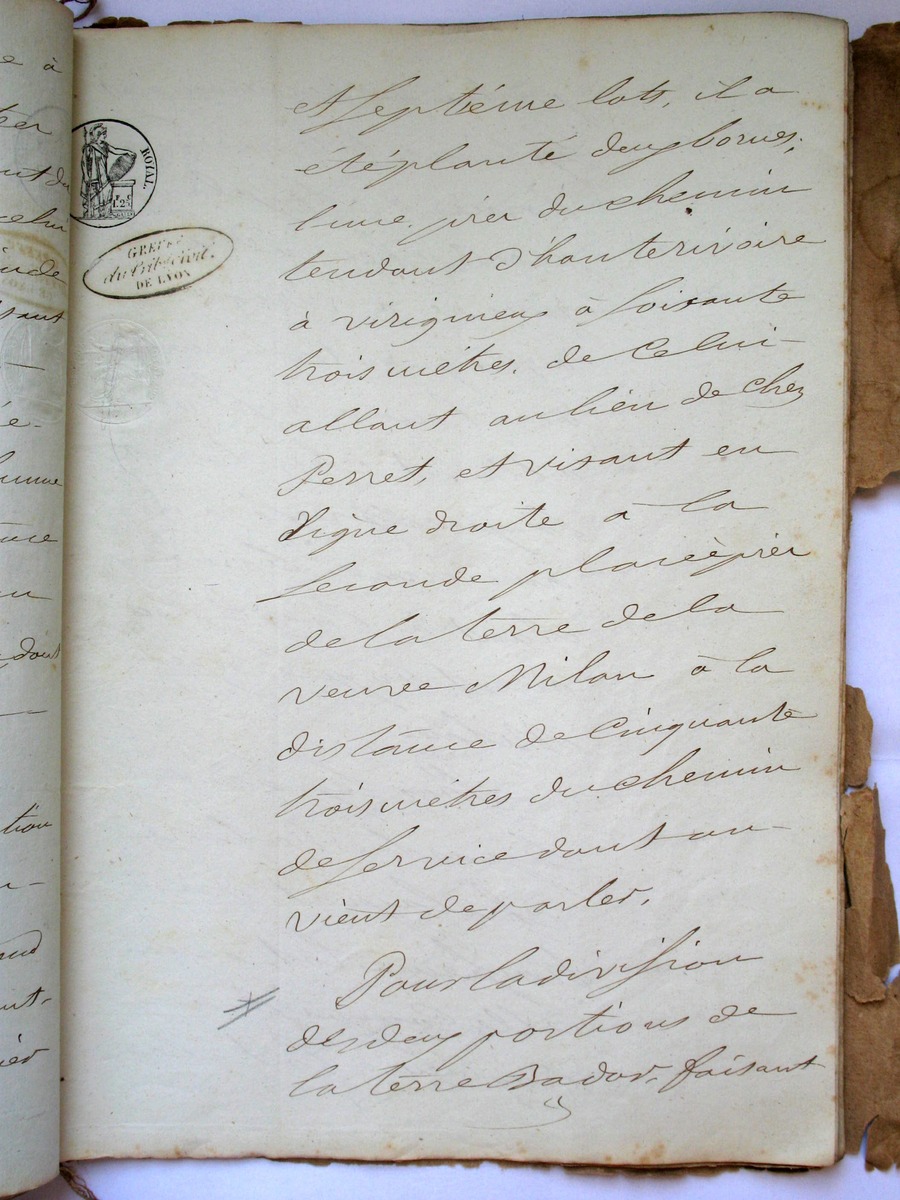 ROYAL.
GREFFE
du Trib. civil.
DE LYON
et Septième lots, il a
été planté deux bornes;
l'une près du chemin
tendant d'hauterivoire
à virigneux à Soixante
trois mètres. de Celui-
allant au lieu de chez
Perret, et visant en
Ligne droite à la
Seconde placée près
de la terre de la
veuve Milan à la
distance de Cinquante
trois mètres du chemin
de Service dont on
vient de parler.
Pour la division
des deux portions de
la terre Bador, faisant